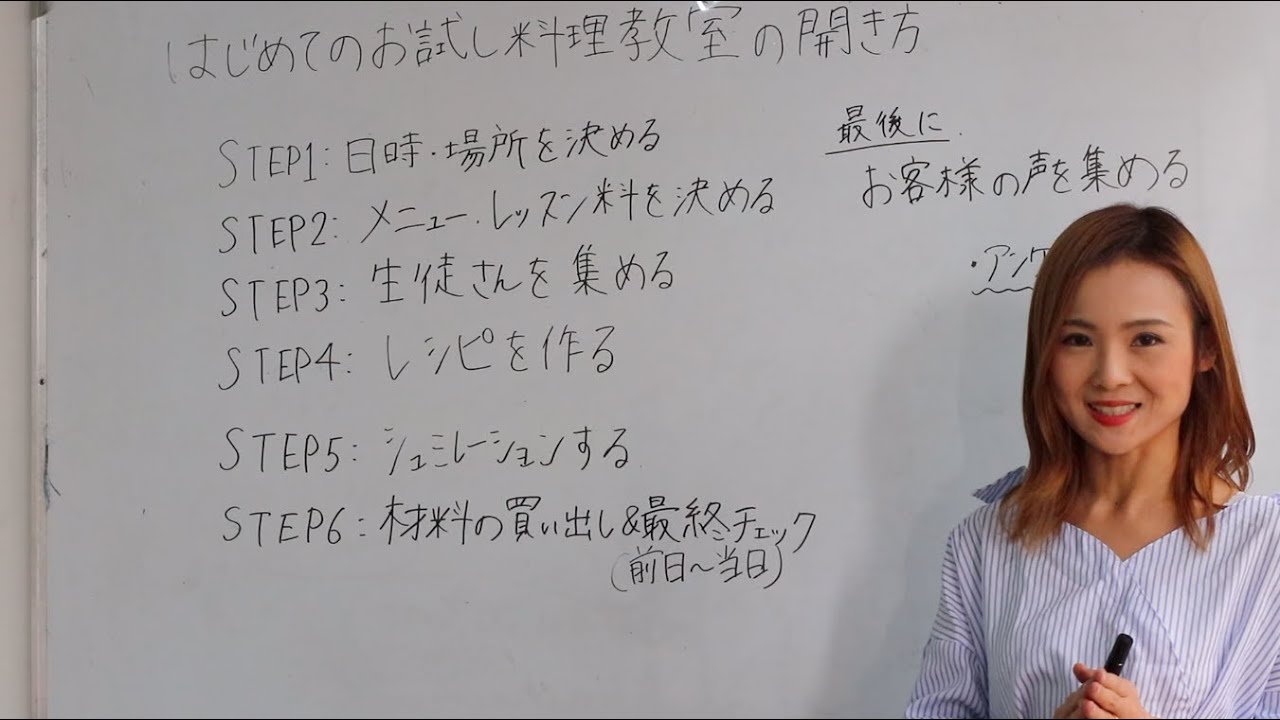 はじめてのお試し料理教室の開き方
STEP1:日時・場所を決める
STEP2:メニュー・レッスン料を決める
STEP3:生徒さんを集める
STEP4:レシピを作る
STEP5:シュミレーションする
STEP6:材料の買い出し&最終チェック
(前日~当日)
最後に
お客様の声を集める